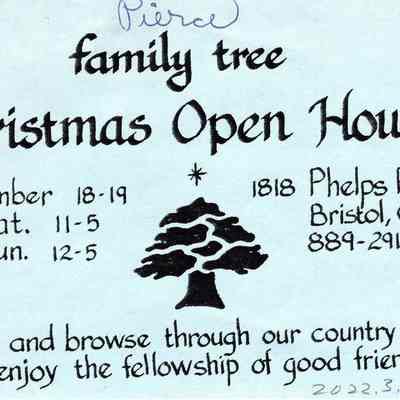 Pierce
family tree
ristmas Open Hou
mber 18-19 1818 Phelps
at. 11-5 Bristol,
un. 12-5 889-291
and browse through our country
enjoy the fellowship of good frien
2022.3.